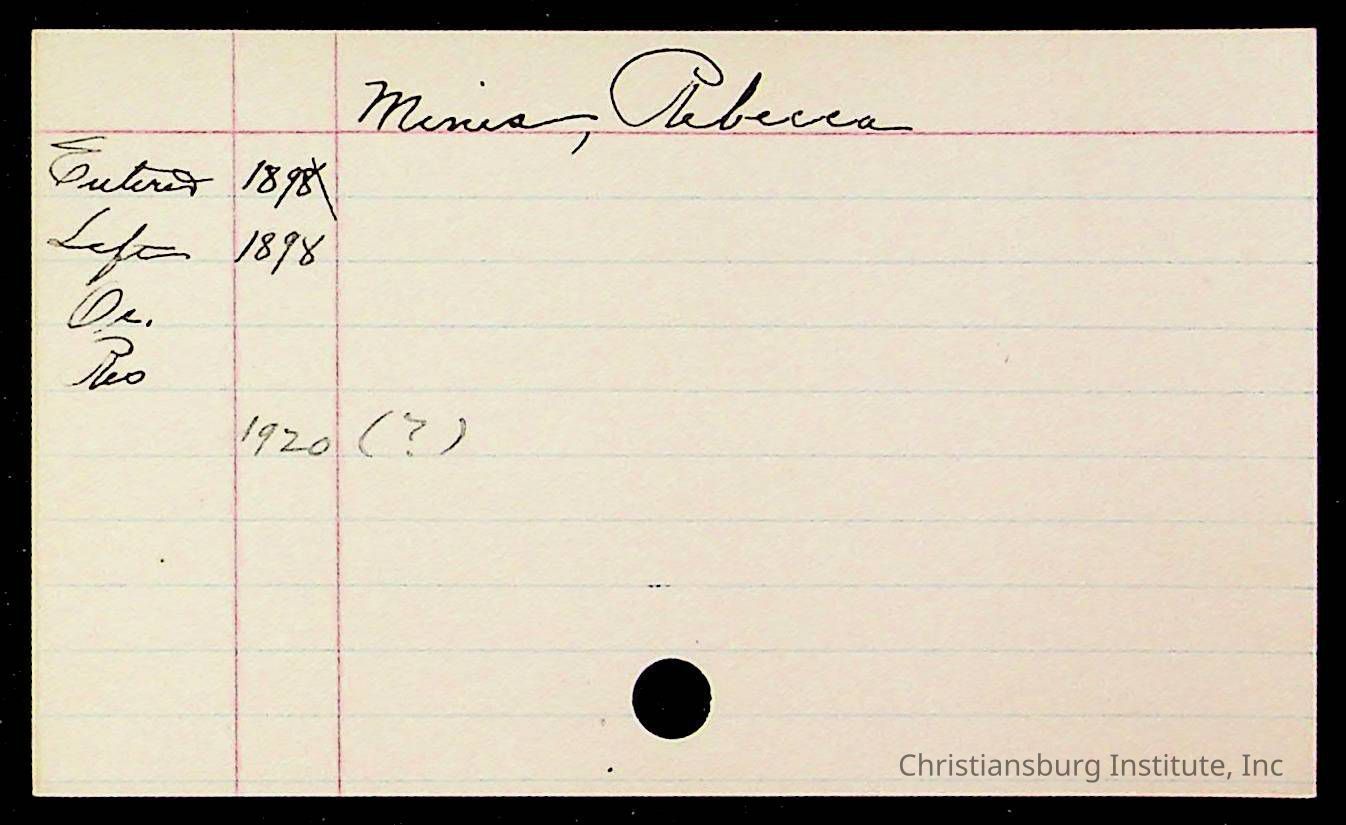 Minis, Rebecca
Entered 1898
Left 1898
Oc.
Res
1920 (?)
Christiansburg Institute, Inc